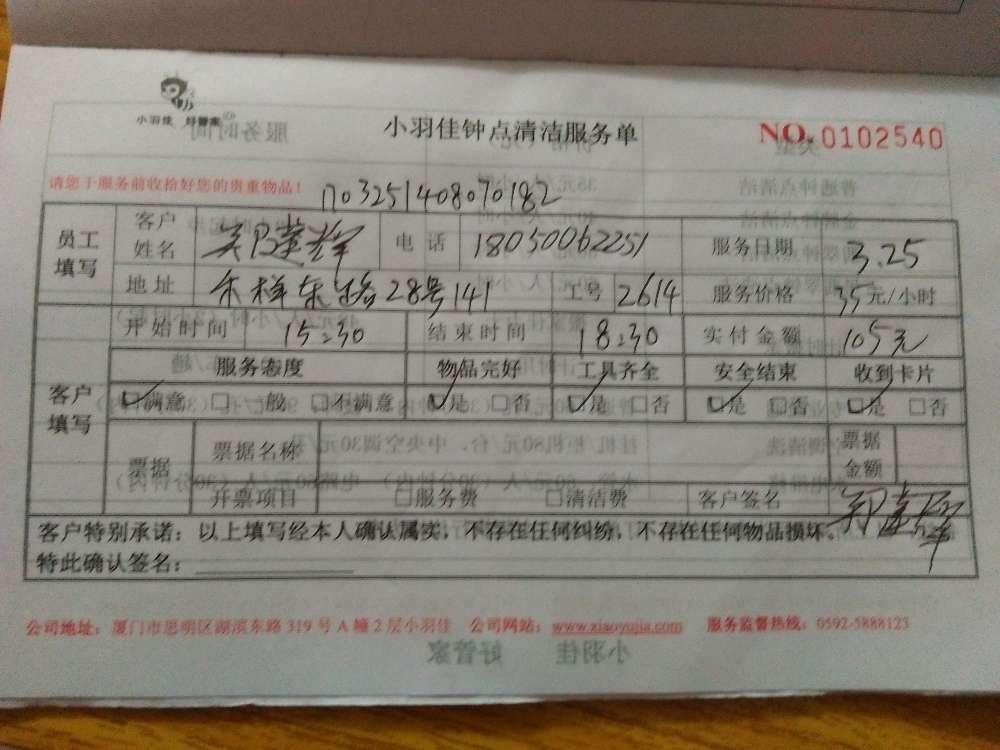 小羽佳 好管家
小羽佳钟点清洁服务单
NO. 0102540
请您于服务前收拾好您的贵重物品!
170325140807 0182
员工填写 客户姓名 电话 18050062251 服务日期 3.25
地址 28号141 工号 2614 服务价格 35元/小时
开始时间 15:30 结束时间 18:30 实付金额 105元
客户填写 服务态度 物品完好 工具齐全 安全结束 收到卡片
☑满意 □一般 □不满意 ☑是 □否 ☑是 □否 ☑是 □否 ☑是 □否
票据 票据名称 票据金额
开票项目 □服务费 □清洁费 客户签名
客户特别承诺:以上填写经本人确认属实,不存在任何纠纷,不存在任何物品损坏。
特此确认签名:
公司地址:厦门市思明区湖滨东路319号A幢2层小羽佳 公司网站:www.xiaoyujia.com 服务监督热线:0592-5888123